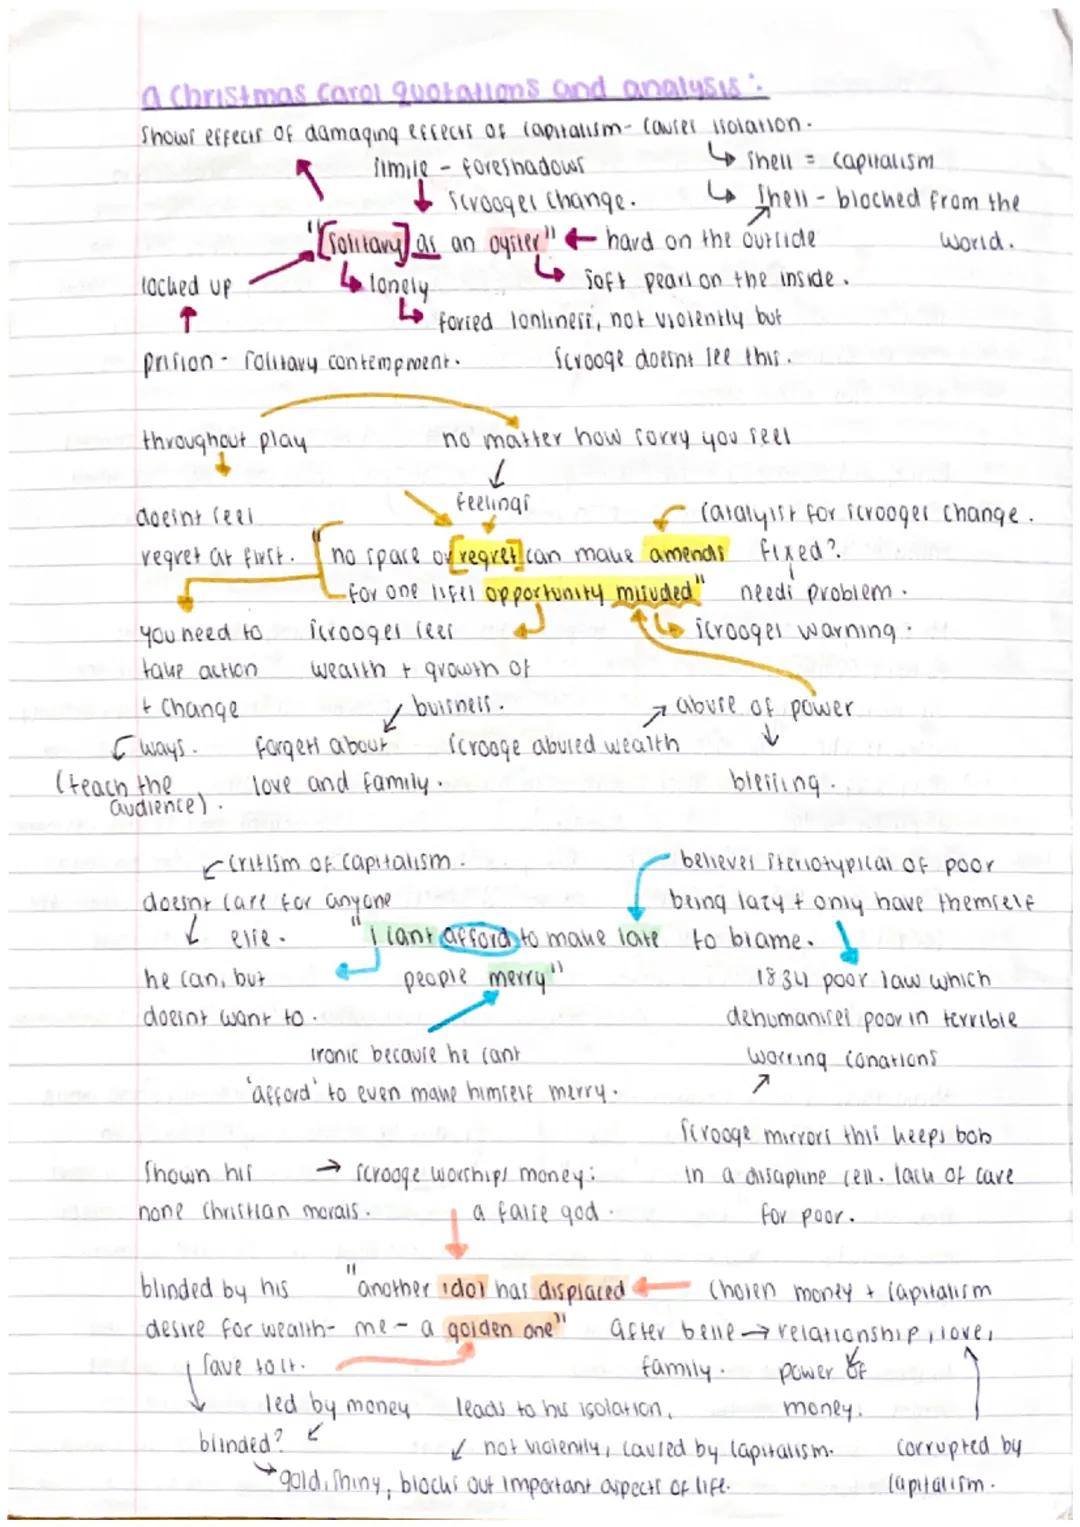 a Christmas Carol quotations and analysis:
Shows effects of damaging effects of capitalism - causes isolation.
simile - foreshadows
↳ shell = capitalism
scrooges change.
↳ shell - blocked from the
world.
"[solitary] as an oyster" ← hard on the outside
locked up
↳ lonely
↳ soft pearl on the inside.
↳ forced lonliness, not violently but
scrooge doesnt see this.
prision - solitary contempment.
throughout play
no matter how sorry you feel
feelings
doesnt feel
regret at first.
catalyist for scrooges change.
no space of [regret] can make amends
fixed?
for one lifes opportunity misuded"
needs problem.
you need to
take action
+ change
ways.
(teach the
audience).
scrooges sees
wealth + growth of
buisness.
scrooges warning.
forgets about
love and family.
abuse of power
scrooge abused wealth
blessing.
critism of capitalism.
doesnt care for anyone
else.
believes steriotypical of poor
being lazy + only have themself
to blame.
"I cant afford to make late
people merry"
he can, but
doesnt want to.
1834 poor law which
dehumanises poor in terrible
worring conations
ironic because he cant
'afford' to even make himself merry.
scrooge mirrors this keeps bob
in a disapline cell. lack of care
for poor.
shown his
none christian morals.
→ scrooge worships money:
a false god.
blinded by his
desire for wealth-
"another idol has displaced
me - a golden one"
← chosen money + capitalism
after belle → relationship, love,
family.
power of
money.
corrupted by
capitalism.
led by money
leads to his isolation,
blinded?
not violently, caused by capitalism.
gold, shiny, blocks out important aspects of life.